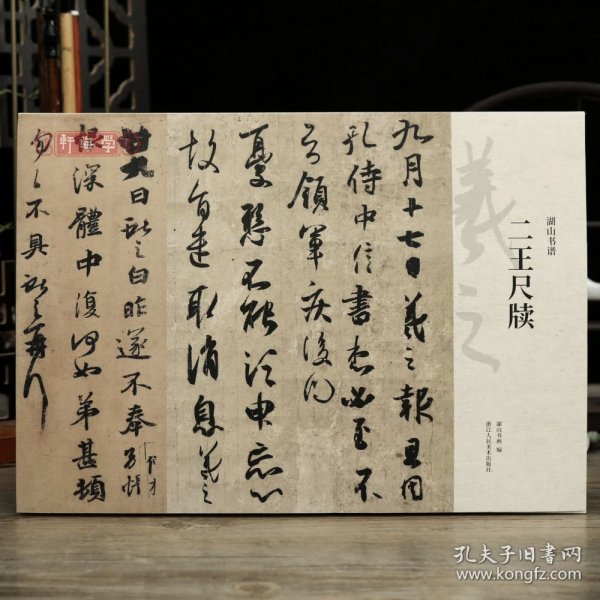 湖山书谱
二王尺牍
羲之
浙江人民美术出版社
九月十七日羲之報且因
孔侍中信書想必至不
知領軍疾後問
憂懸不能須臾忘心
故旨遣取消息羲之
廿九日獻之白昨遂不奉別悵
恨深體中復何如弟甚頓
匆匆不具獻之再拜
軒海學
孔夫子旧书网
www.kongfz.com